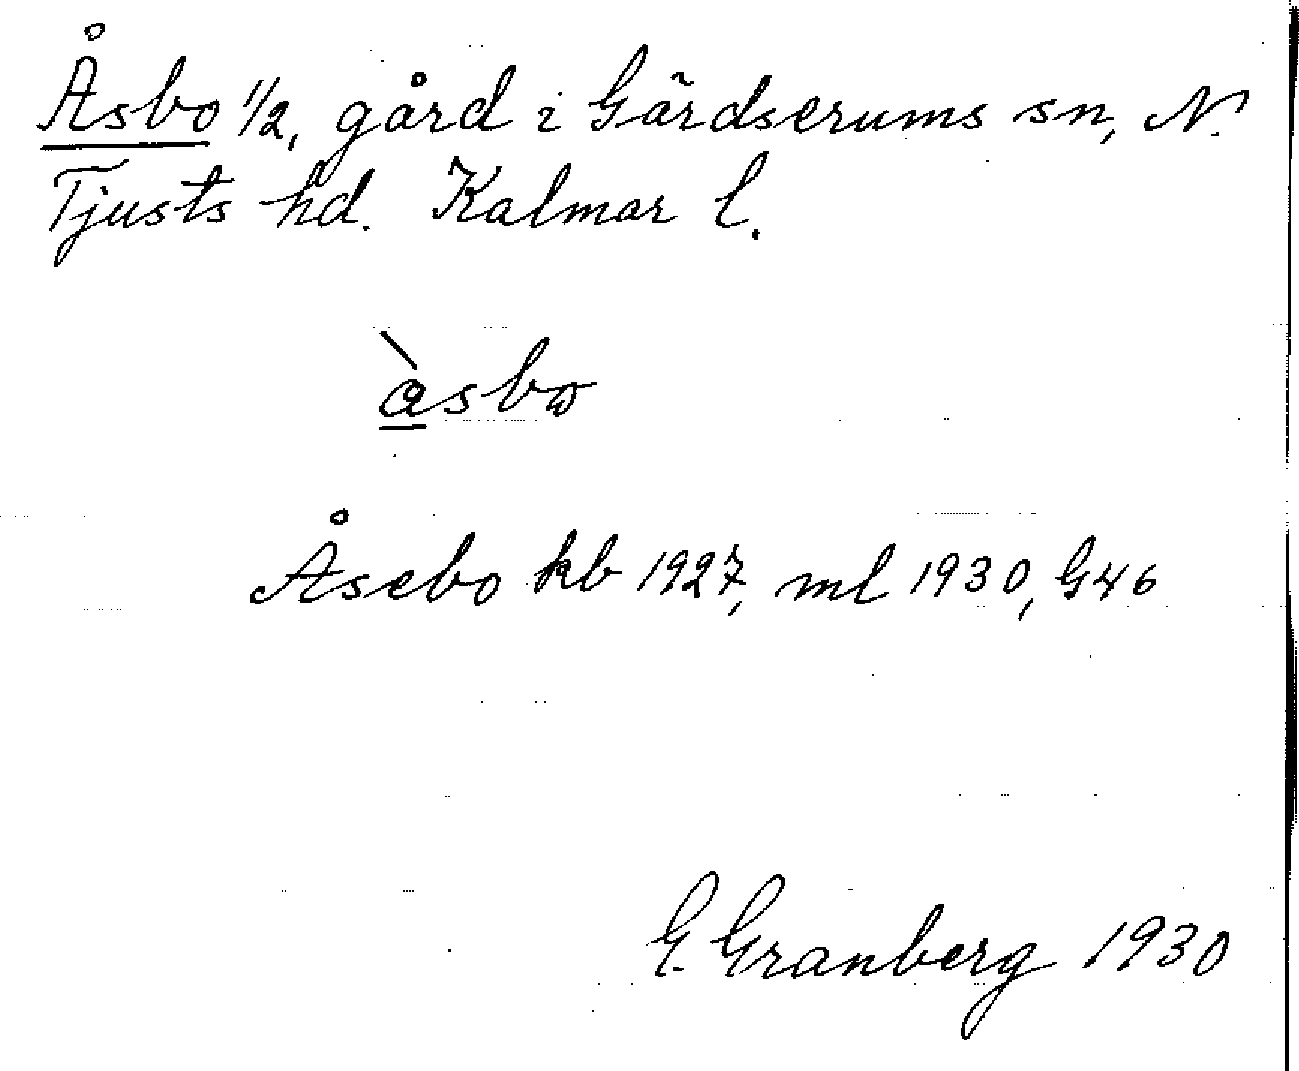 Åsbo 1/2, gård i Gärdserums sn, N.
Tjusts hd. Kalmar l.
àsbo
Åsebo kb 1927, ml 1930, G46
G. Granberg 1930